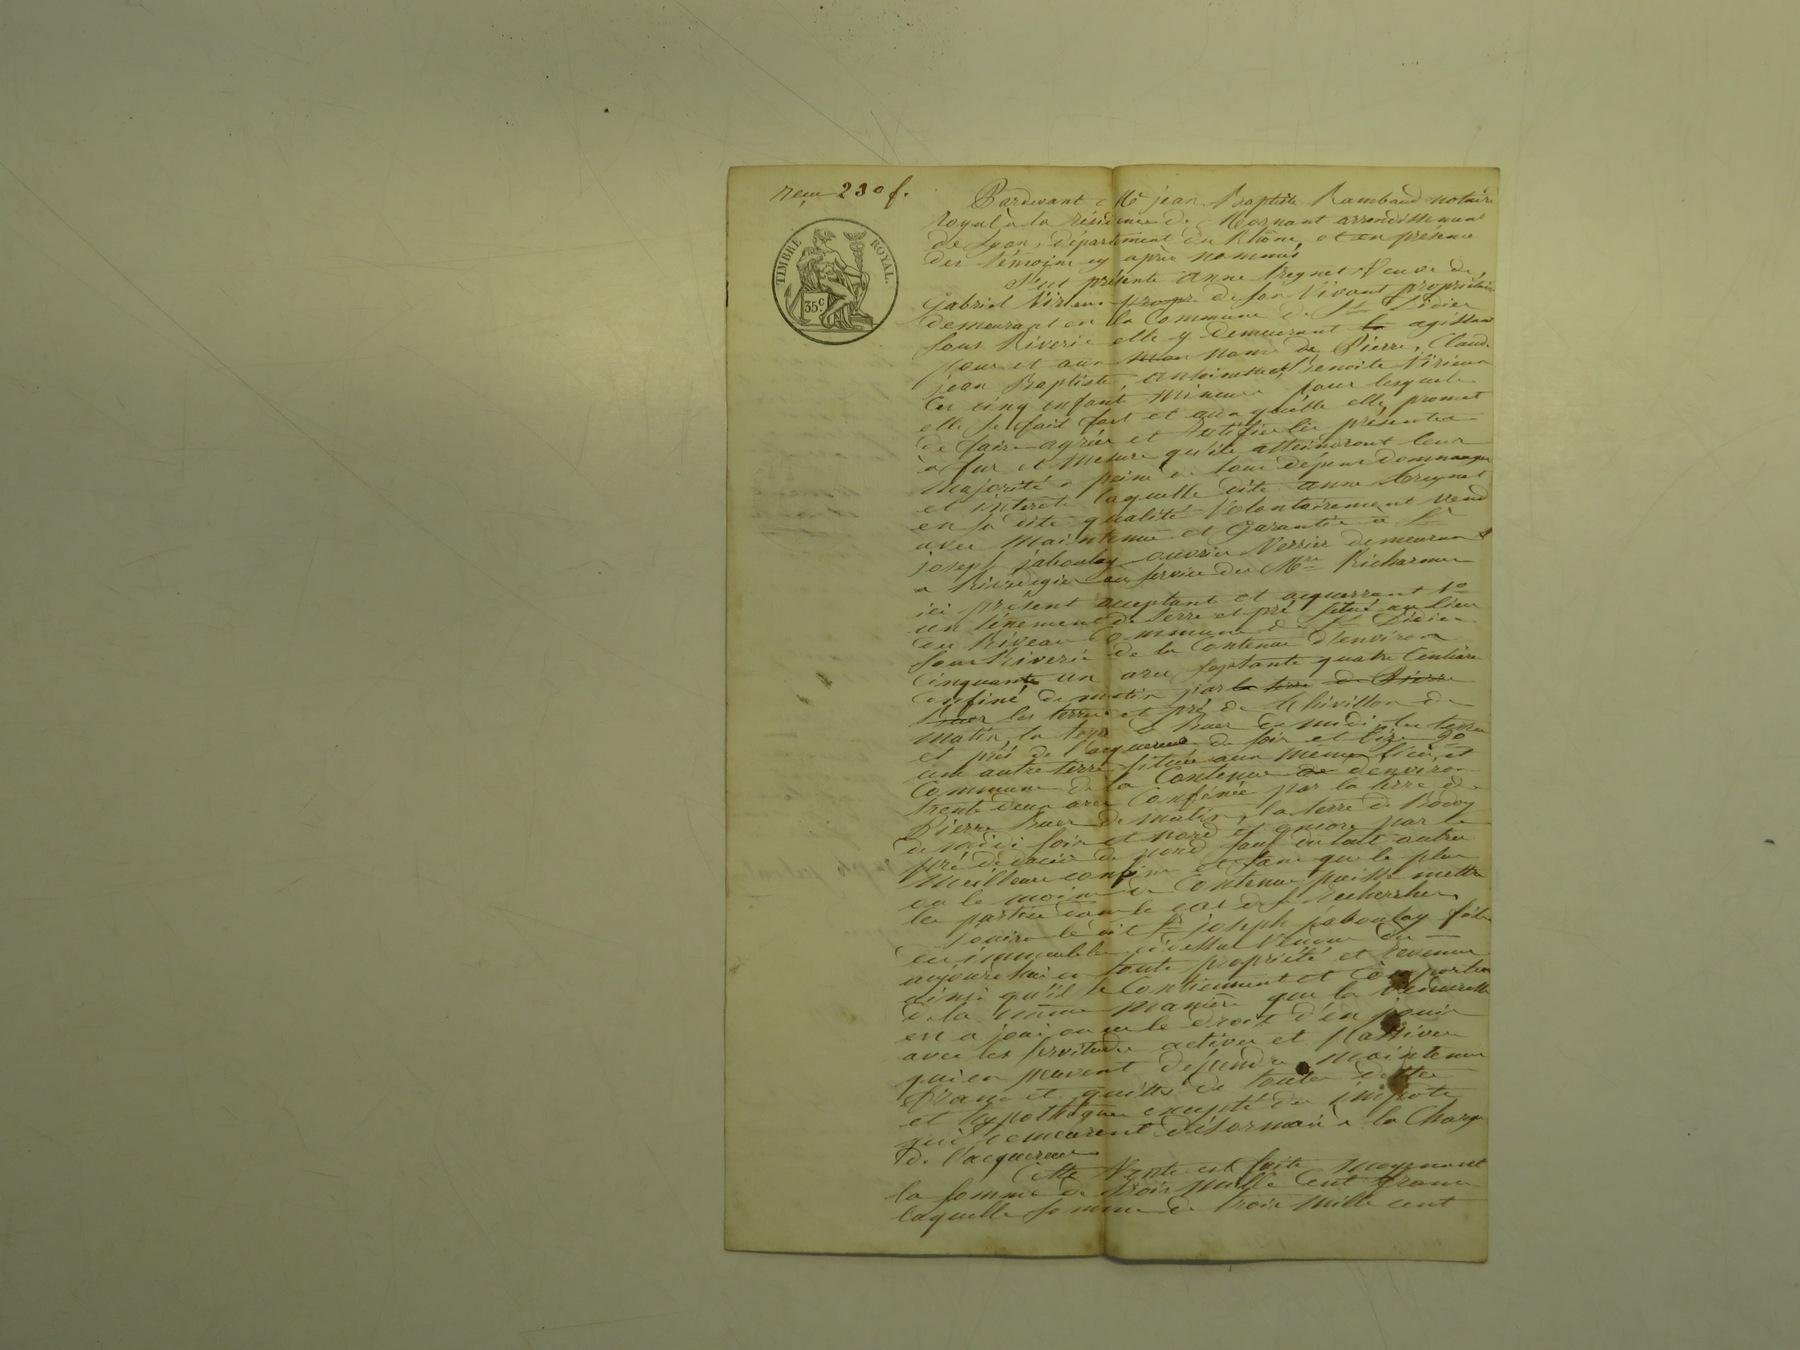 reçu 230 f.
TIMBRE ROYAL
35 c
Pardevant Me jean Baptiste Rambaud notaire
Royal à la résidence de Mornant arrondissement
de Lyon, département du Rhône, et en présence
des témoins cy après nommés
fut présente anne tregnet Veuve de
gabriel Virieux propr de son Vivant propriétaire
demeurant en la Commune de St Didier
sous Riverie elle y demeurant la agissant
pour et aux mon noms de Pierre, Claude
jean Baptiste, antoinette, benoite Virieux
Ces cinq enfant mineurs pour lesquels
elle se fait fort et auxquels elle promet
de faire agréer et Ratifier les présentes
à fur et mesure qu'ils atteindront leur
majorité à peine de tous dépens dommages
et intérêts laquelle dite anne tregnet
en sa dite qualité Volontairement vend
avec maintenue et garantie à Sr
joseph jaboulay ouvrier Verrier demeurant
a Rivedegier au service de Mrs Richarme
ici présent acceptant et acquerrant 1o
un tènement de terre et pré situé au lieu
du Rigeau Commune de St Didier
sous Riverie de la Contenue d'environ
Cinquante un ares septante quatre Centiares
confiné de matin par la terre de Pierre
Buer les terres et pré de Chivillon de
matin, la terre de Buer de midi, les terres
et pré de l'acquereur de soir et bize 2o
une autre terre située aux mêmes lieu et
Commune de la Contenue de denviron
trente deux ares Confinée par la terre de
Pierre Buer de matin, la terre de Bovoy
de midi soir et nord et encore par le
pré de de nord sauf du tout autres
Meilleurs confins et sans que le plus
ou le moins de Contenue puisse mettre
les parties dans le cas de se rechercher
jouira le dit Sr joseph jaboulay
des immeubles cidessus Vendus de
aujourdhui en toute propriété et revenus
ainsi qu'ils se Contiennent et Comportent
de la même manière que la venderesse
en a joui ou eu le droit d'en jouir
avec les servitudes actives et passives
qui en peuvent dépendre maintenus
francs et quittes de toutes dettes
et hypothèques excepté des impots
qui demeurent désormais à la Charge
de l'acquereur
Cette Vente est faite moyenant
la somme de trois mille Cent francs
laquelle somme de trois mille cent